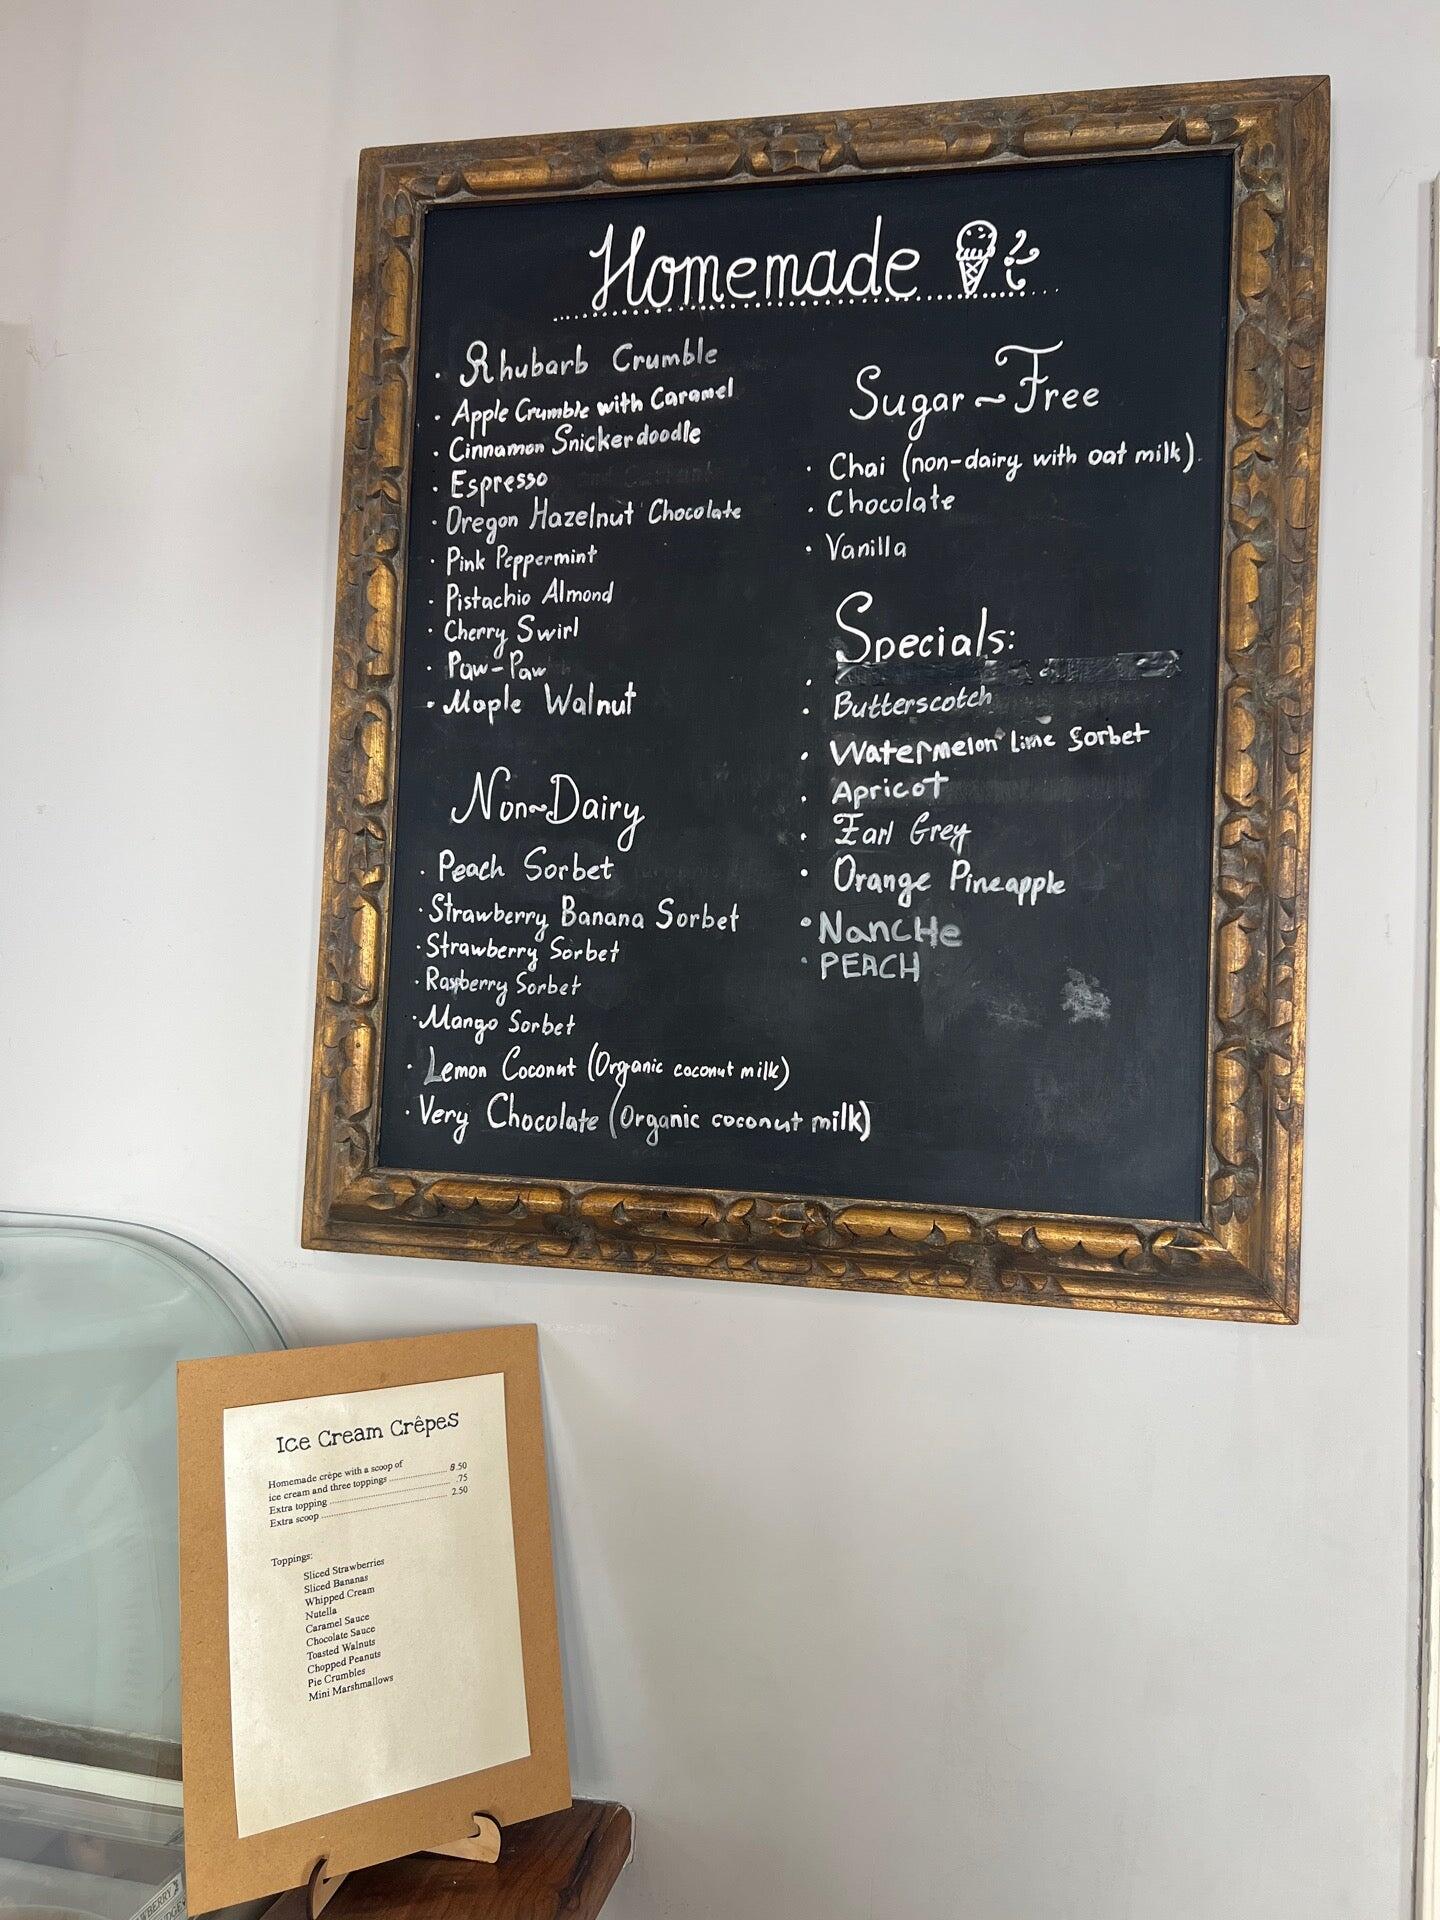 Homemade
· Rhubarb Crumble
· Apple Crumble with Caramel
· Cinnamon Snickerdoodle
· Espresso
· Oregon Hazelnut Chocolate
· Pink Peppermint
· Pistachio Almond
· Cherry Swirl
· Paw-Paw
· Maple Walnut
Non~Dairy
· Peach Sorbet
· Strawberry Banana Sorbet
· Strawberry Sorbet
· Raspberry Sorbet
· Mango Sorbet
· Lemon Coconut (Organic coconut milk)
· Very Chocolate (Organic coconut milk)
Sugar~Free
· Chai (non-dairy with oat milk)
· Chocolate
· Vanilla
Specials:
· Butterscotch
· Watermelon Lime Sorbet
· Apricot
· Earl Grey
· Orange Pineapple
· NancHe
· PEACH
Ice Cream Crêpes
Homemade crêpe with a scoop of
ice cream and three toppings .......... 8.50
Extra topping .......... .75
Extra scoop .......... 2.50
Toppings:
Sliced Strawberries
Sliced Bananas
Whipped Cream
Nutella
Caramel Sauce
Chocolate Sauce
Toasted Walnuts
Chopped Peanuts
Pie Crumbles
Mini Marshmallows